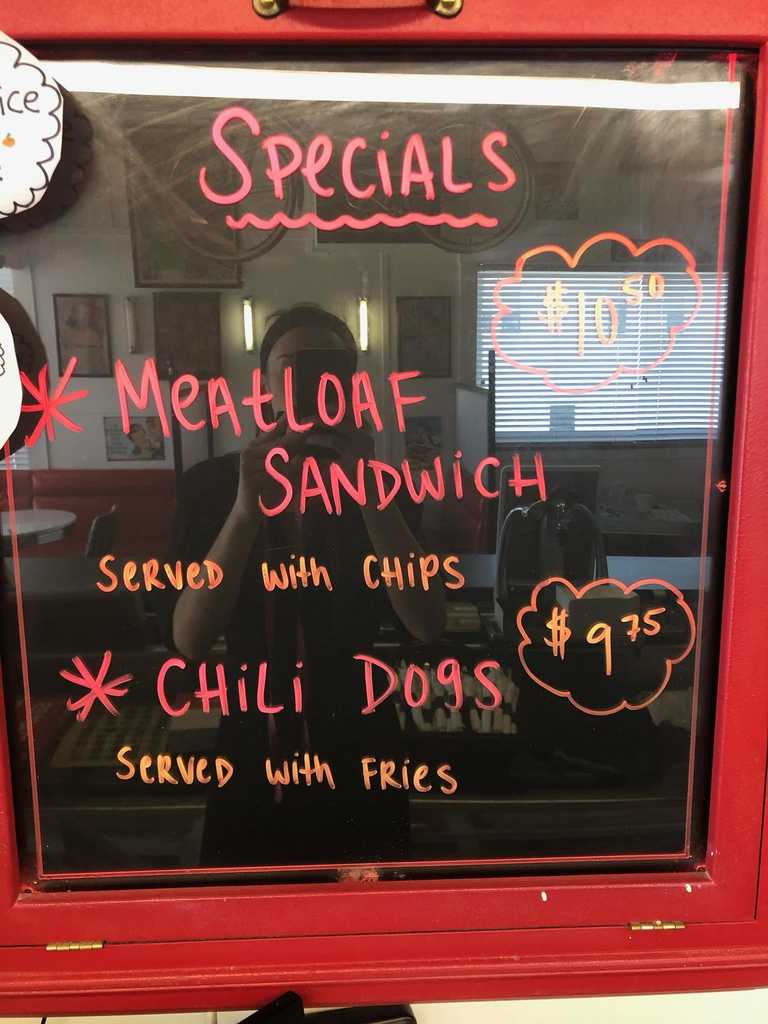 ice
SPECIALS
$10.50
* MEATLOAF
SANDWICH
SERVED with CHIPS
$9.75
* CHILI DOGS
SERVED with FRIES